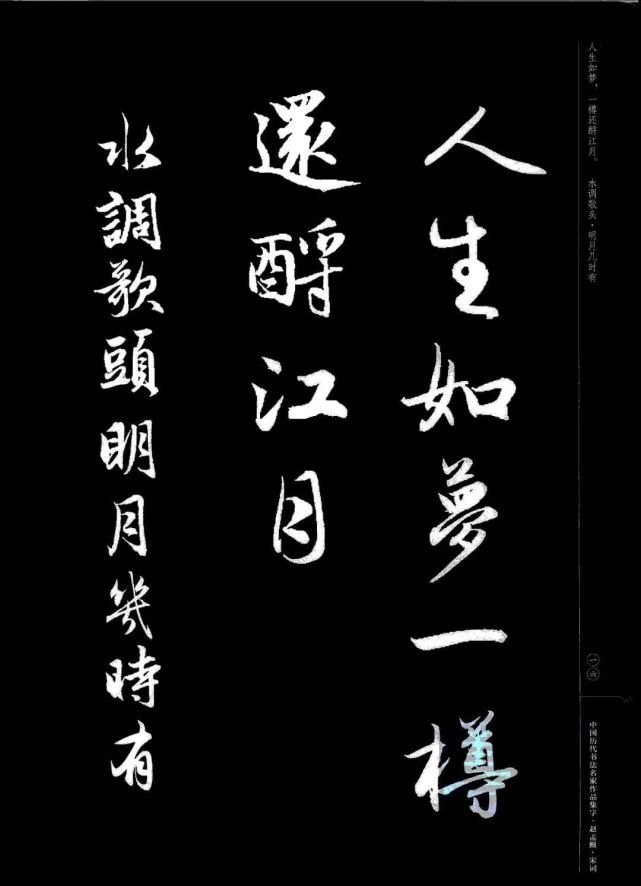 人生如夢一樽
還酹江月
水調歌頭明月幾時有
人生如梦，一樽还酹江月。 水调歌头·明月几时有
一六
中国历代书法名家作品集字·赵孟頫·宋词